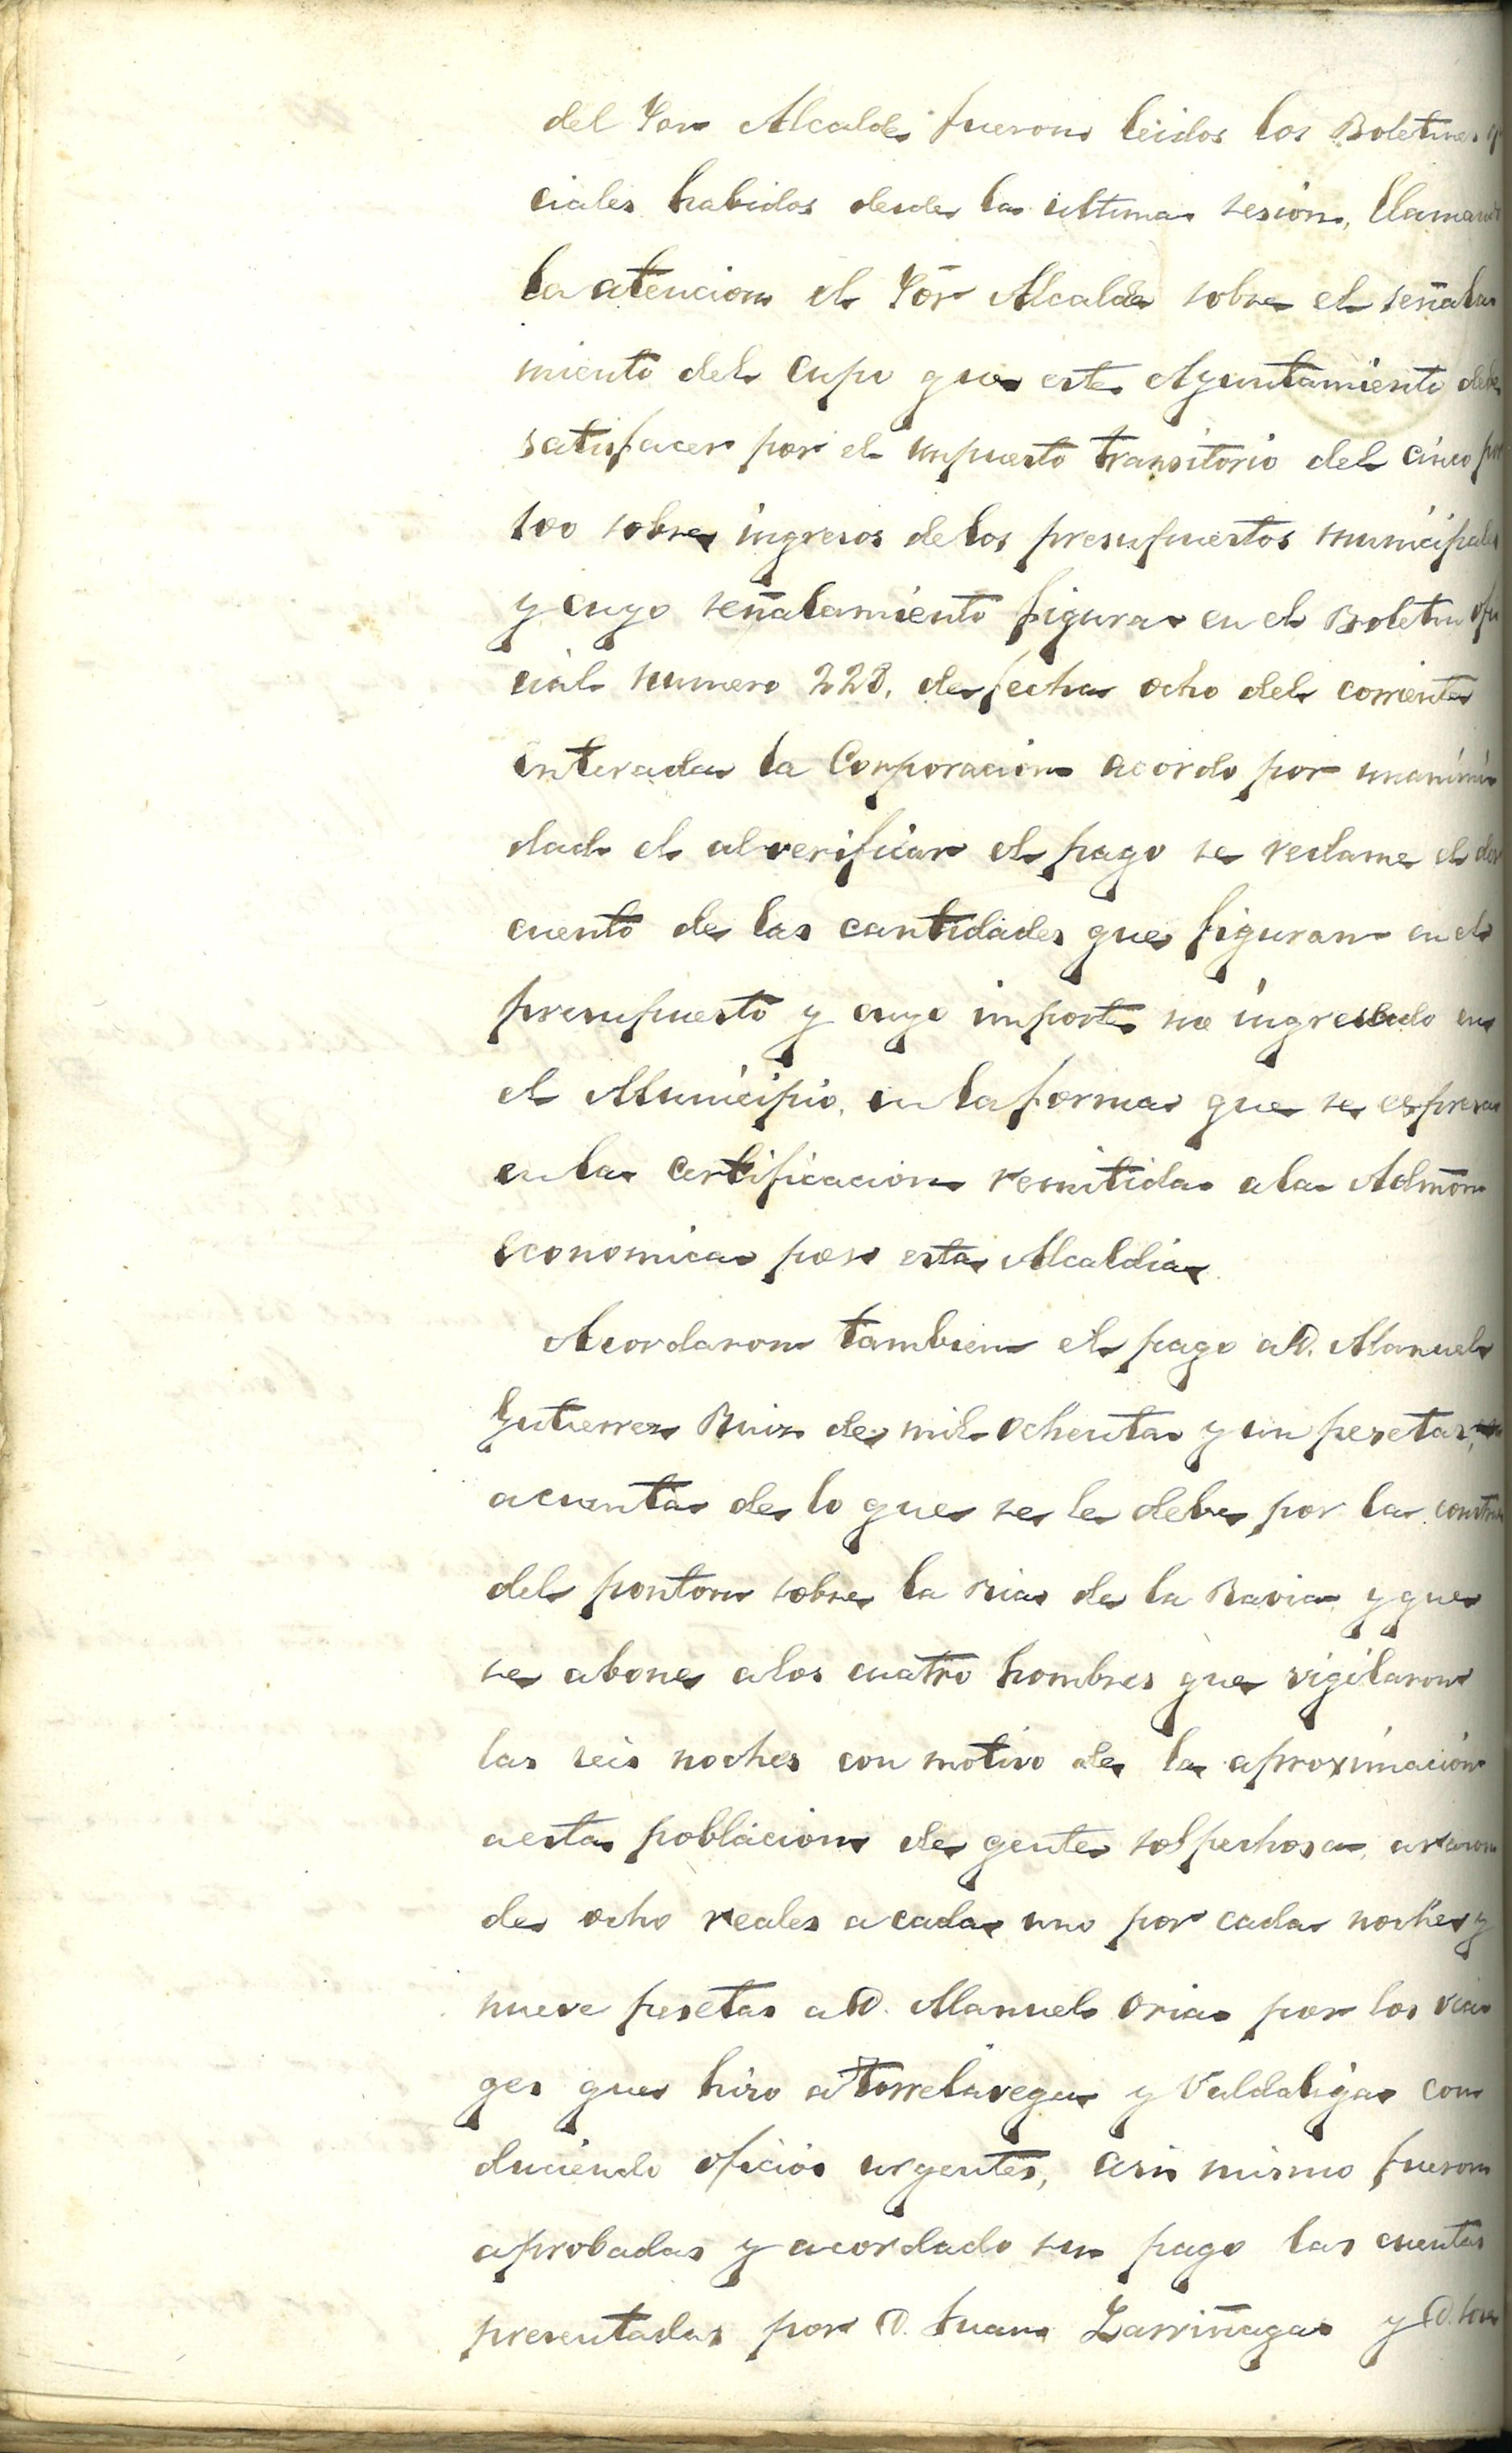 del Sor Alcalde fueron leidos los Boletines
ciales habidos desde la ultima sesión, llamando
la atencion el Sor Alcalde sobre el señala
miento del cupo que este Ayuntamiento debe
satisfacer por el impuesto transitorio del cinco por
100 sobre ingresos de los presupuestos municipales
y cuyo señalamiento figura en el Boletin ofi
cial numero 228, de fecha ocho del corriente
enterada la Corporacion acordo por unanimi
dad el al verificar el pago se reclame el des
cuento de las cantidades que figuran en el
presupuesto y cuyo importe no ingresado en
el Municipio, en la forma que se espresa
en la certificacion remitida a la Admōn
economica por esta Alcaldia.
Acordaron tambien el pago a D. Manuel
Gutierrez Ruiz de mil ochenta y un pesetas,
acuenta de lo que se le debe por la constru
del ponton sobre la Ria de la Ravia y que
se abone a los cuatro hombres que vigilaron
las seis noches con motivo de la aproximación
a esta poblacion de gente sospechosa, a razon
de ocho reales a cada uno por cada noche y
nueve pesetas a D. Manuel Oria por los via
ges que hizo a Torrelavega y Valdaliga con
duciendo oficios urgentes, asi mismo fueron
aprobadas y acordado su pago las cuentas
presentadas por D. Juan Larrinaga y D.